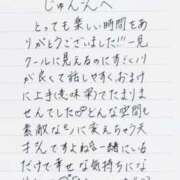 じゅんさんへ
とっても楽しい時間をあ
りがとうございました!!!一見
クールに見えるのにすごくノリ
が良くて話しやすくおまけ
に上手(意味深)でたまりま
せんでした♂どんな空間も
素敵な に変えちゃう天
才さんですよね一緒にいる
だけで幸せな気持ちにな